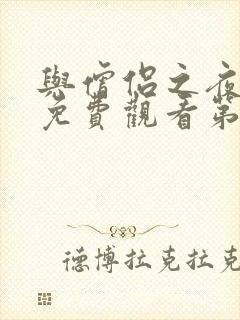 與僧侶之夜
免費觀看第
德博拉克拉克